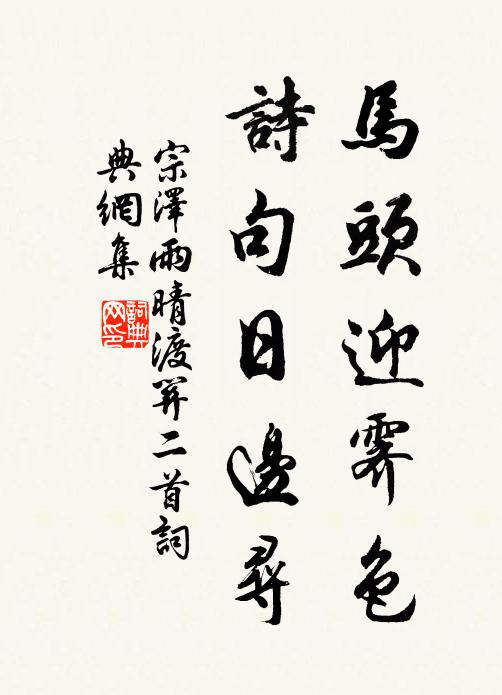 馬頭迎霽色
詩句日邊尋
宗澤雨晴渡關二首詞
典網集
詞典
网印